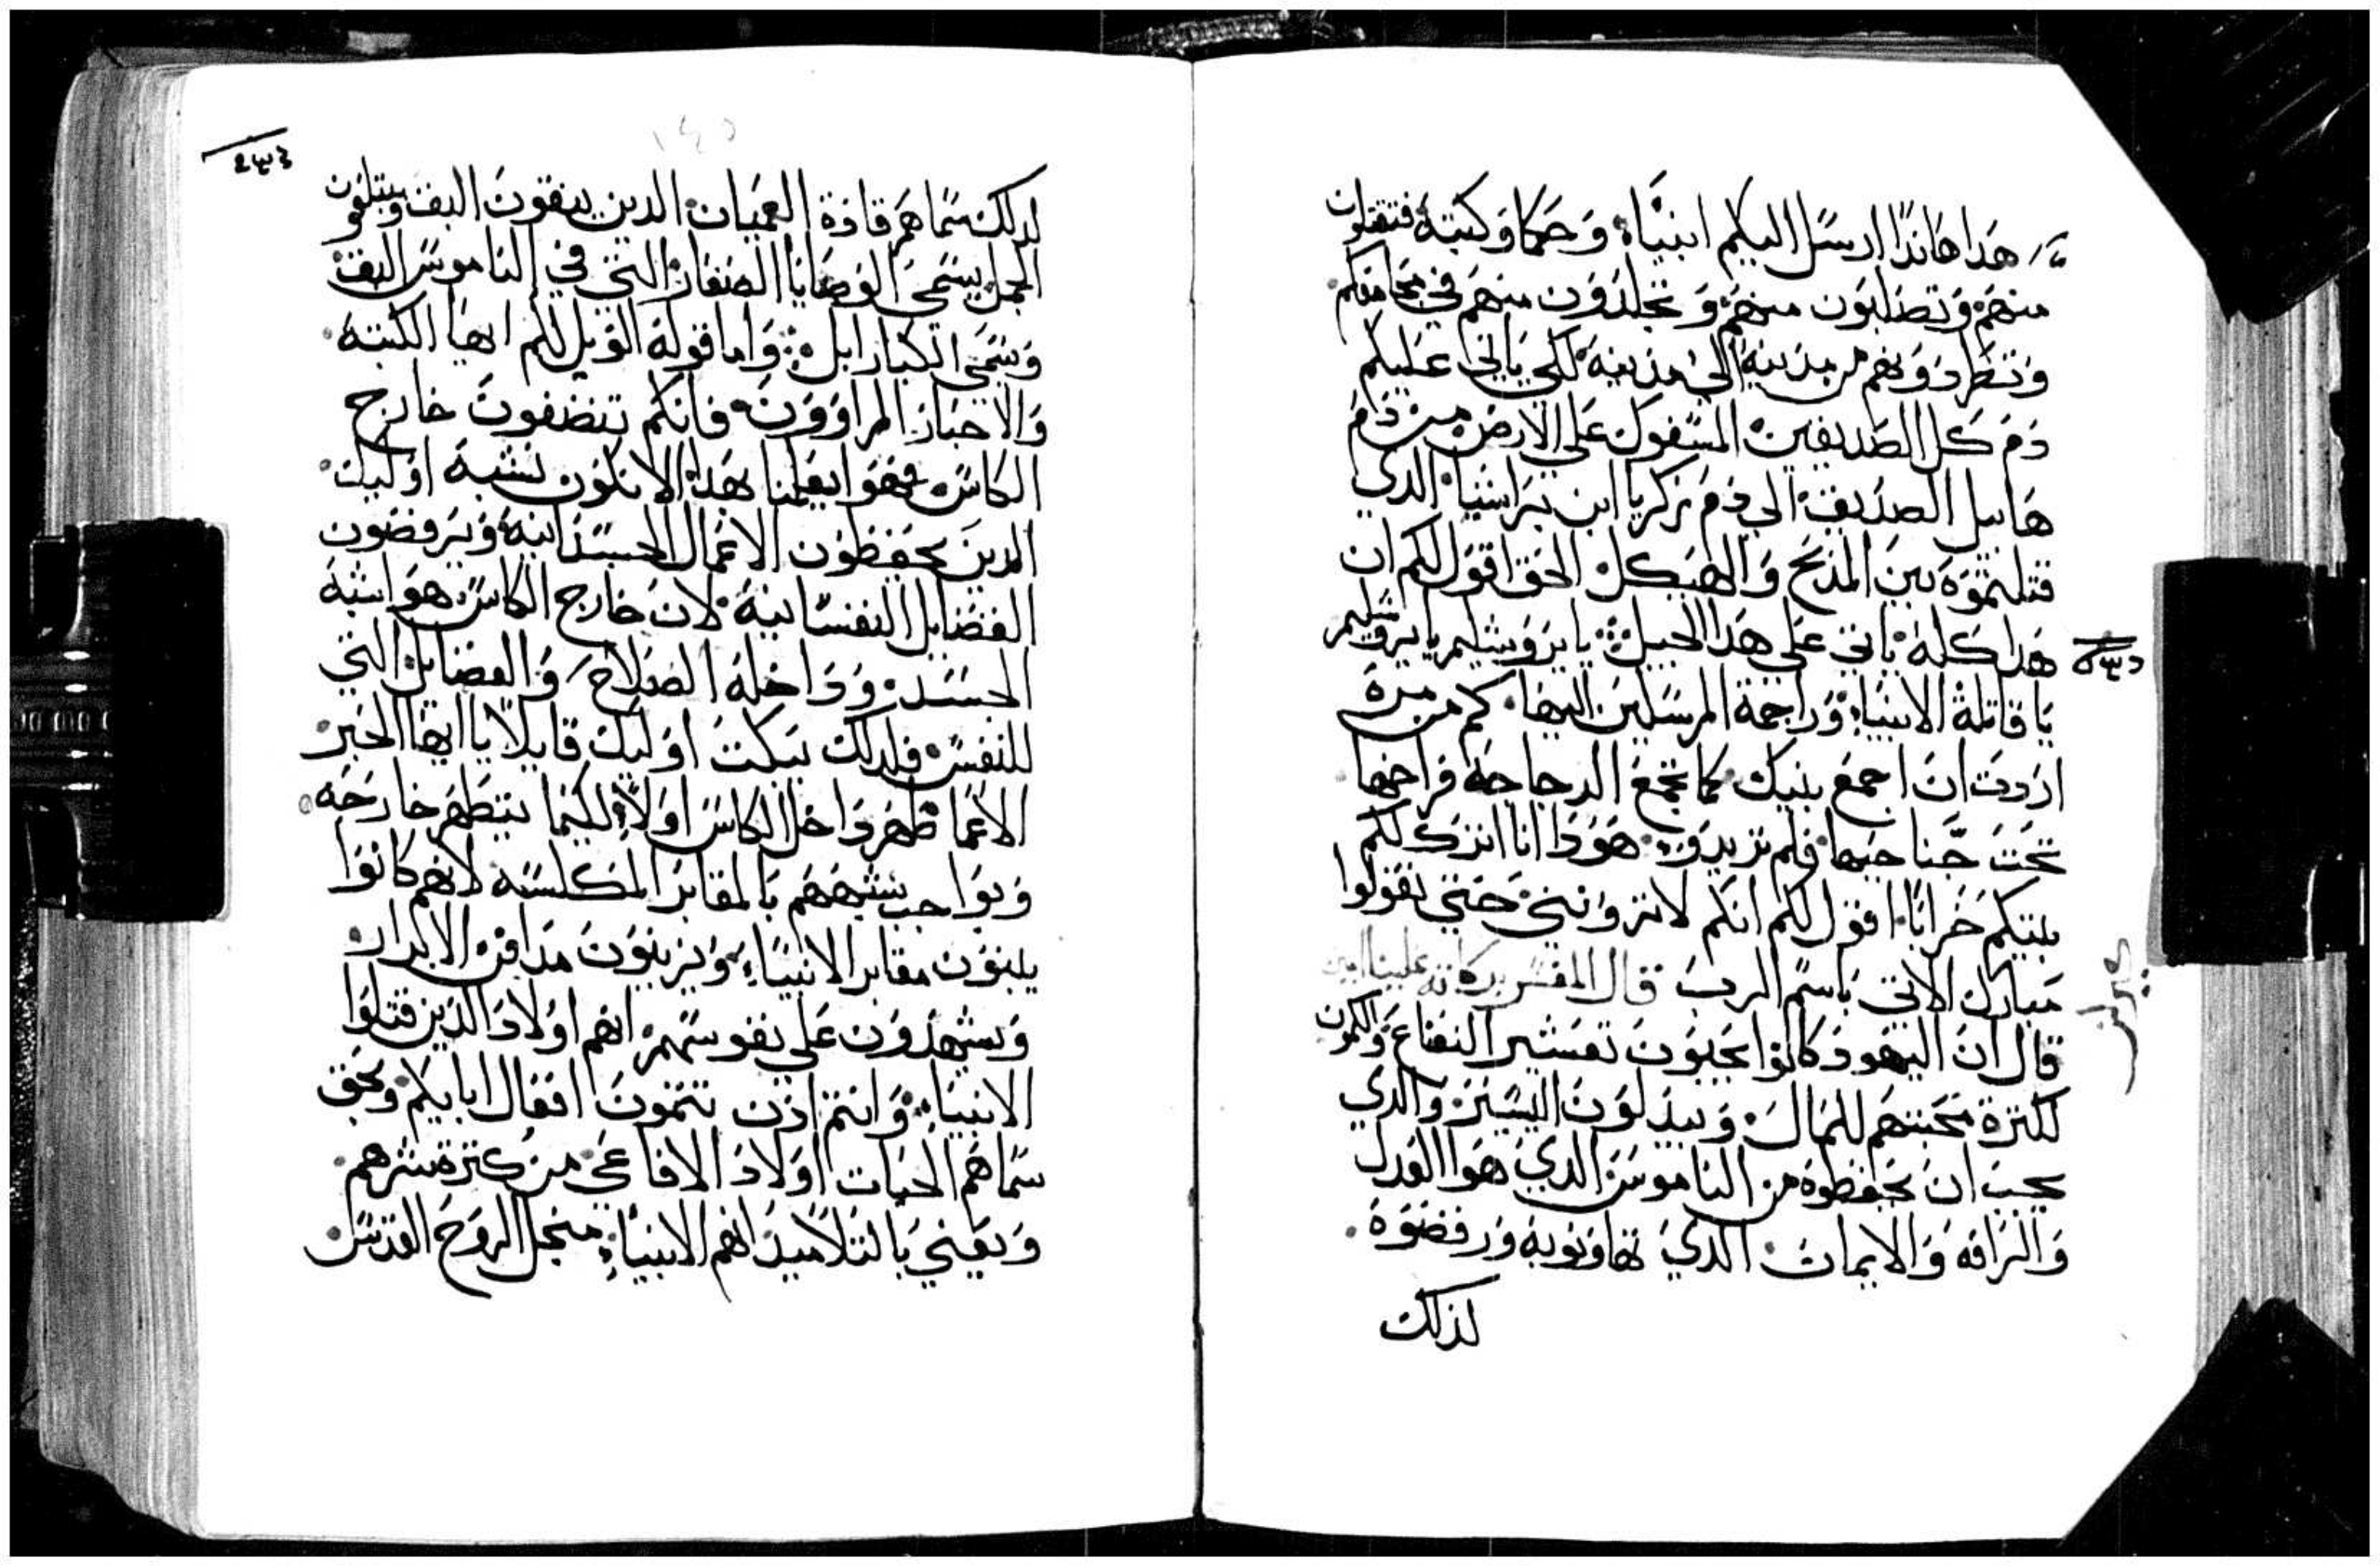 هدا هاندا ارسل اليكم انبياء وحكما وكتبة فتقتلون
منهم وتصلبون منهم وتجلدون منهم في مجامعكم
وتطردونهم من مدينه الى مدينه لكي ياتي عليكم
دم كل الصديقين المسفوك على الارض من دم
هابيل الصديق الي دم زكريا ابن براشيا الدي
قتلتموه بين المدبح والهيكل الحق اقول لكم ان
هدا كله ياتي علي هدا الجيل يا يروشليم يا يروشليم
يا قاتلة الانبياء وراجمة المرسلين اليها كم من مرة
اردت ان اجمع بنيك كما تجمع الدجاجه فراخها
تحت جناحيها فلم تريدو هودا انا اترك لكم
بيتكم خرابا اقول لكم انكم لا تروني حتي تقولوا
مبارك الاتي باسم الرب قال المفسر بركاته علينا امين
قال ان اليهود كانوا يحبون تعشير النعناع والكمون
لكثرة محبتهم للمال ويبدلون اليسير والدي
يجب ان يحفظوه من الناموس الدي هوا العدل
والرافه والايمان الدي تهاونوبه ورفضوه
لذلك
لدلك سماهم قادة العميان الدين ينقون البق ويبتلعون
الجمل يسمي الوصايا الصغار التي في الناموس البق
ويسمي الكبار ابل واما قوله الويل لكم ايها الكتبه
والاحبار المراوون فانكم تنضفون خارج
الكاس فهوا يعلمنا بهدا الا نكون نشبه اوليك
الدين يحفظون الاعمال الجسدانيه ويرفضون
الفضايل النفسانيه لان خارج الكاس هوا شبه
الجسد وداخله الصلاح والفضايل التي
للنفس فلدلك يبكت اوليك قايلا يا ايها الحبر
الاعما طهر داخل الكاس اولا لكيما يتطهر خارجه
وبواجب شبههم بالمقابر المكلسه لانهم كانوا
يبنون مقابر الانبياء ويزينون مدافن الابرار
ويشهدون علي نفوسهم انهم اولاد الدين قتلوا
الانبياء وانتم اذن تتمون افعال ابايكم وبحق
سماهم الحيات اولاد الافاعي من كترة شرهم
ويعني بالتلاميد انهم الانبياء منجل الروح القدس